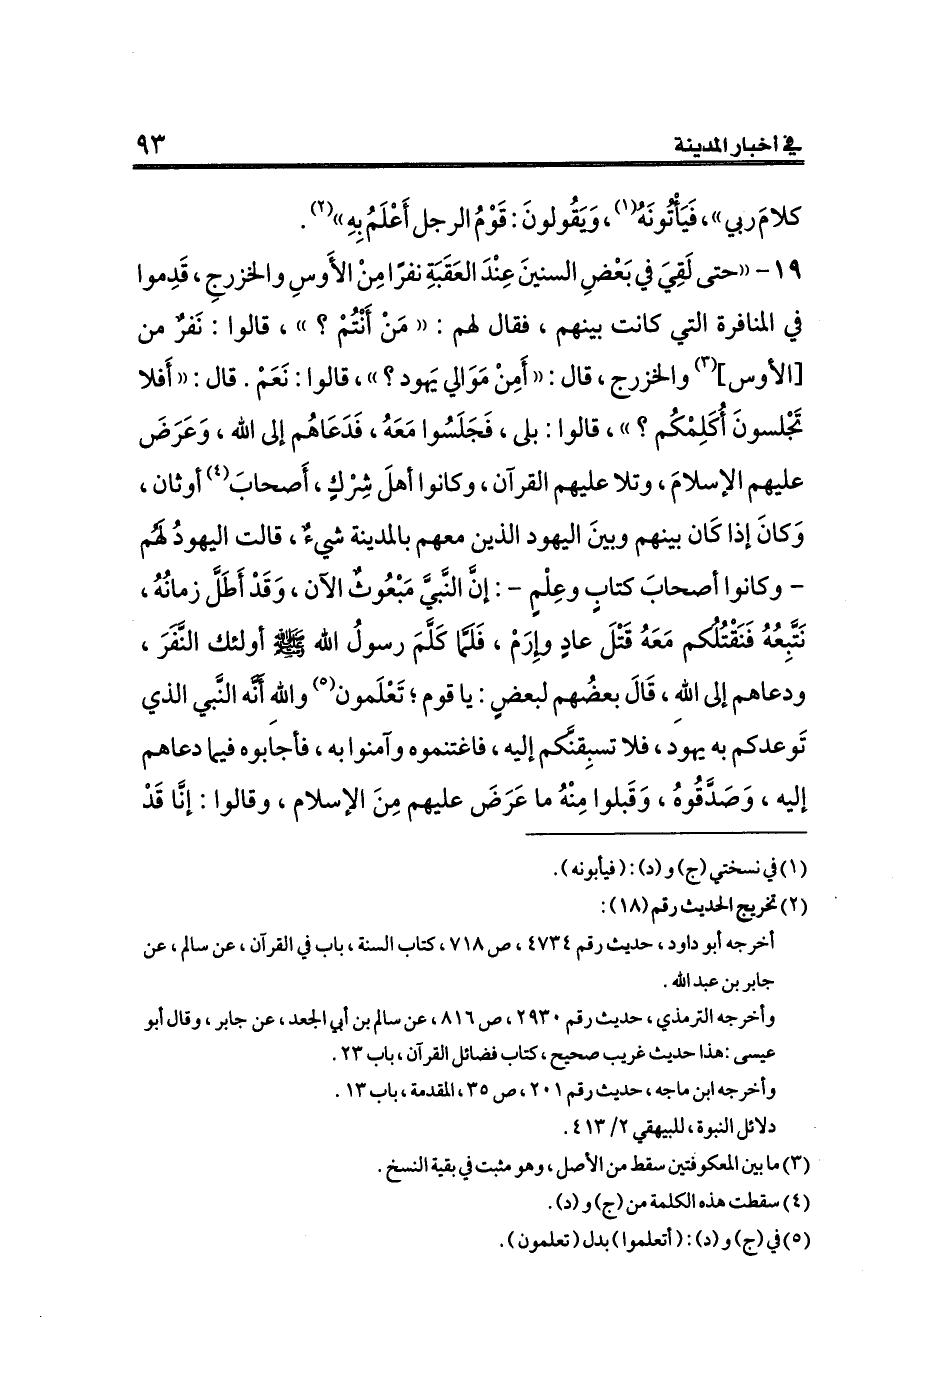 في أخبار المدينة ٩٣
كلامَ ربي»، فَيَأْتُونَهُ(١)، وَيَقُولونَ: قَوْمُ الرجل أَعْلَمُ بِهِ»(٢).
١٩ - «حتى لَقِيَ في بَعْضِ السنينَ عِنْدَ العَقَبَةِ نفرًا مِنْ الأَوسِ والخزرجِ، قَدِموا
في المنافرة التي كانت بينهم، فقال لهم: «مَنْ أَنْتُمْ؟»، قالوا: نَفرٌ من
[الأوس](٣) والخزرج، قال: «أَمِنْ مَوَالي يَهود؟»، قالوا: نَعَمْ. قال: «أفلا
تَجْلسونَ أُكَلِمْكُم؟»، قالوا: بلى، فَجَلَسُوا مَعَهُ، فَدَعَاهُم إلى الله، وَعَرَضَ
عليهم الإسلامَ، وتلا عليهم القرآن، وكانوا أهلَ شِرْكٍ، أَصحابَ(٤) أوثان،
وَكانَ إذا كَان بينهم وبينَ اليهود الذين معهم بالمدينة شيءٌ، قالت اليهودُ لَهُم
- وكانوا أصحابَ كتابٍ وعِلْمٍ -: إنَّ النَّبيَّ مَبْعُوثٌ الآن، وَقَدْ أَطَلَّ زمانُهُ،
نَتَّبِعُهُ فَنَقْتُلُكم مَعَهُ قَتْلَ عادٍ وإِرَمْ، فَلَمَّا كَلَّمَ رسولُ الله ﷺ أولئك النَّفَرَ،
ودعاهم إلى الله، قَالَ بعضُهم لبعضٍ: يا قوم؛ تَعْلَمون(٥) واللهِ أَنَّه النَّبي الذي
تَوعدكم به يهود، فلا تسبِقنَّكم إليه، فاغتنموه وآمنوا به، فأجابوه فيما دعاهم
إليه، وَصَدَّقُوهُ، وَقَبلوا مِنْهُ ما عَرَضَ عليهم مِنَ الإسلام، وقالوا: إنَّا قَدْ
(١) في نسختي (ج) و(د): (فيأبونه).
(٢) تخريج الحديث رقم (١٨):
أخرجه أبو داود، حديث رقم ٤٧٣٤، ص ٧١٨، كتاب السنة، باب في القرآن، عن سالم، عن
جابر بن عبد الله.
وأخرجه الترمذي، حديث رقم ٢٩٣٠، ص ٨١٦، عن سالم بن أبي الجعد، عن جابر، وقال أبو
عيسى: هذا حديث غريب صحيح، كتاب فضائل القرآن، باب ٢٣.
وأخرجه ابن ماجه، حديث رقم ٢٠١، ص ٣٥، المقدمة، باب ١٣.
دلائل النبوة، للبيهقي ٢/ ٤١٣.
(٣) ما بين المعكوفتين سقط من الأصل، وهو مثبت في بقية النسخ.
(٤) سقطت هذه الكلمة من (ج) و(د).
(٥) في (ج) و(د): (أتعلموا) بدل (تعلمون).